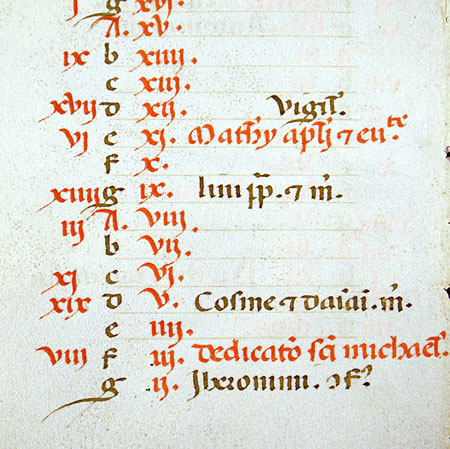 j g xvj.
A. xv.
ix b xiiij.
c xiij.
xvij d xij. Vigil'.
vj e xj. Mathy apl'i ⁊ eu.te
f x.
xiiij g ix. lini pp̄. ⁊ m̄.
iij A. viij.
b vij.
xj c vj.
xix d v. Cosme ⁊ daiai. m̄.
e iiij.
viij f iij. Dedicatō sc̄i michael'.
g ij. Jheronimi. ↄf.